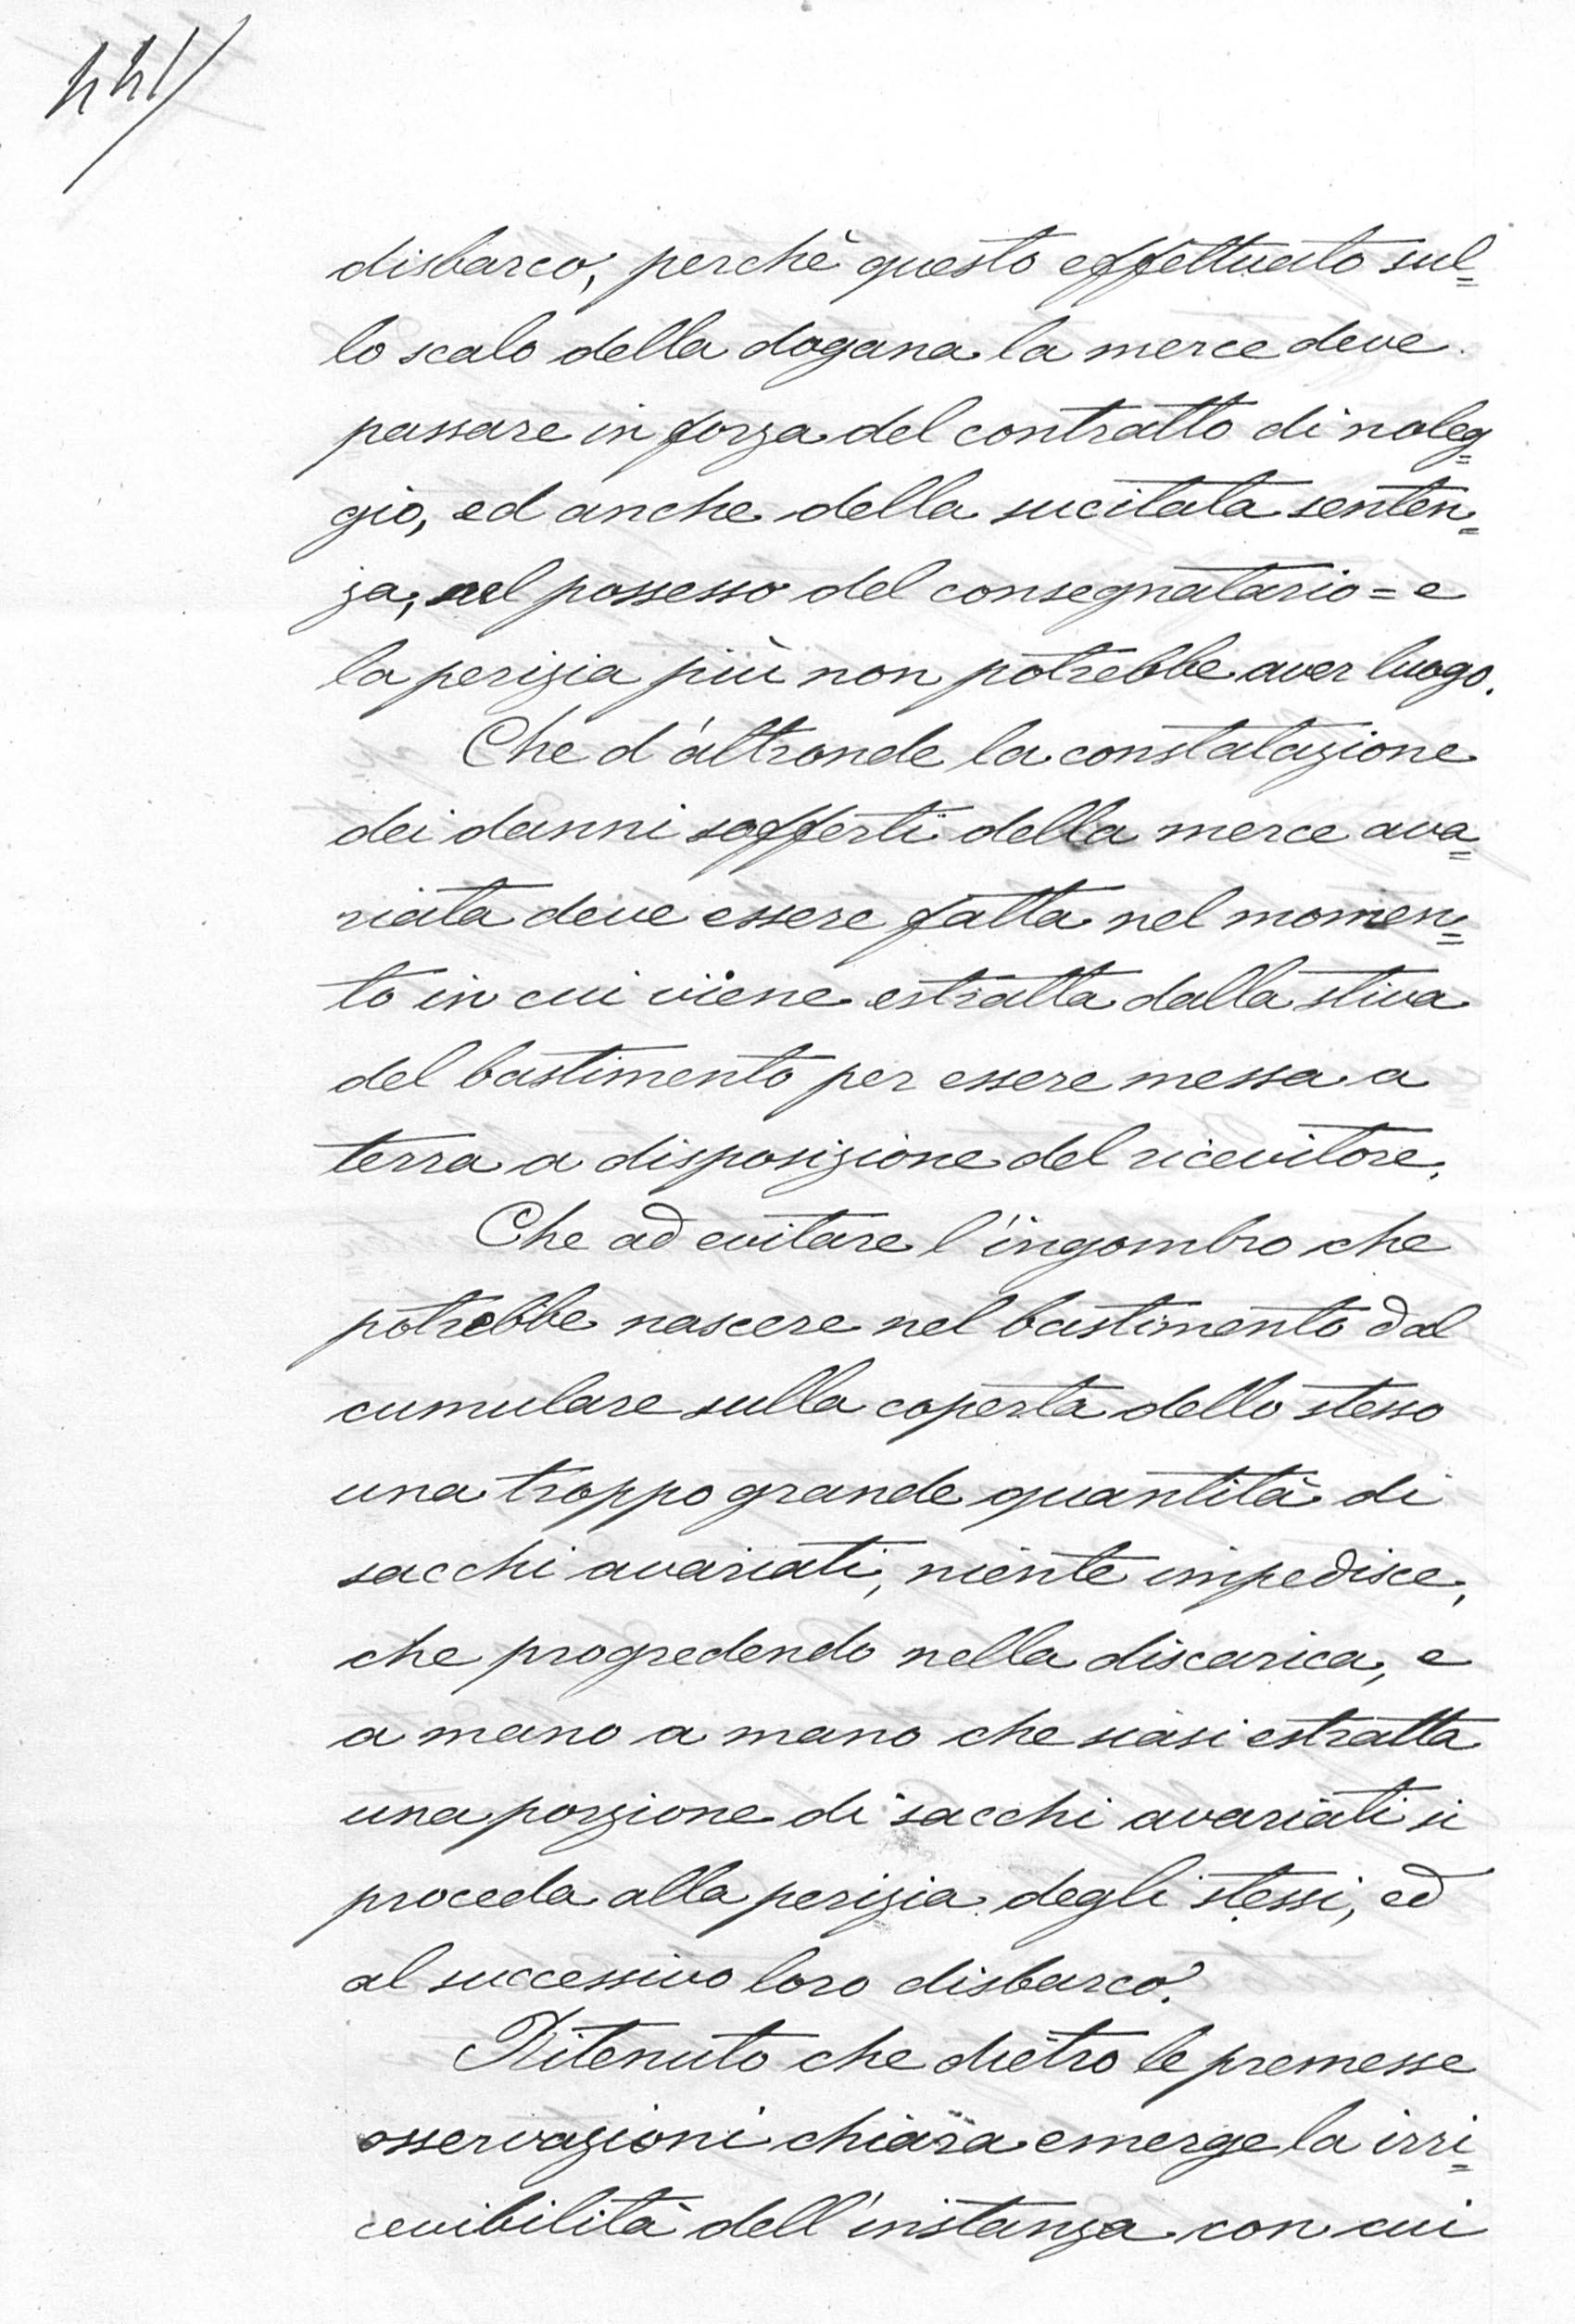 disbarco, perchè questo effettuato sul=
lo scalo della dogana la merce deve
passare in forza del contratto di noleg=
gio, ed anche della sucitata senten=
za, nel possesso del consegnatario = e
la perizia più non potrebbe aver luogo.
Che d'altronde la constatazione
dei danni sofferti della merce ava=
riata deve essere fatta nel momen=
to in cui viene estratta dalla stiva
del bastimento per essere messa a
terra a disposizione del ricevitore.
Che ad evitare l'ingombro che
potrebbe nascere nel bastimento dal
cumulare sulla coperta dello stesso
una troppo grande quantità di
sacchi avariati, niente impedisce,
che progredendo nella discarica, e
a mano a mano che siasi estratta
una porzione di sacchi avariati si
proceda alla perizia degli stessi, ed
al successivo loro disbarco.
Ritenuto che dietro le premesse
osservazioni chiara emerge la irri=
cevibilità dell'instanza con cui